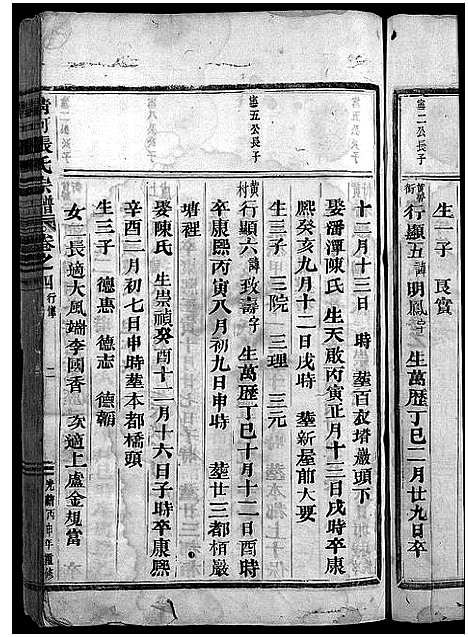 憲二公長子
生一子 良實
黃㢑街行顯五諱明鳳字 生萬歷丁巳二月廿九日卒
憲五公長子
十二月十三日 時 塟百衣塔巖頭下
娶潘潭陳氏 生天啟丙寅正月十三日戌時卒康
熙癸亥九月十二日戌時 塟新屋前大要
生三子 三院 三理 三元
黃村行顯六諱致壽字 生萬歷丁巳十月十二日酉時
卒康熙丙寅八月初九日申時 塟廿三都栢巖
塘裡
娶陳氏 生崇禎癸酉十二月十六日子時卒康熙
辛酉二月初七日申時塟本都橋頭
生三子 德惠 德志 德朝
女一 長適大風端李國香 次適上盧金規富
清河張氏宗譜 卷之四 行傳 二 光緒丙申年重修